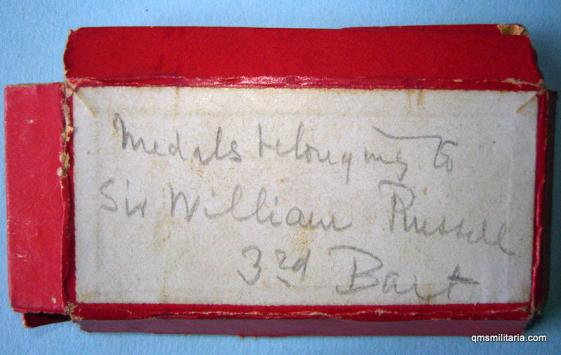 Medals belonging to
Sir William Russell
3rd Bart
qmsmilitaria.com